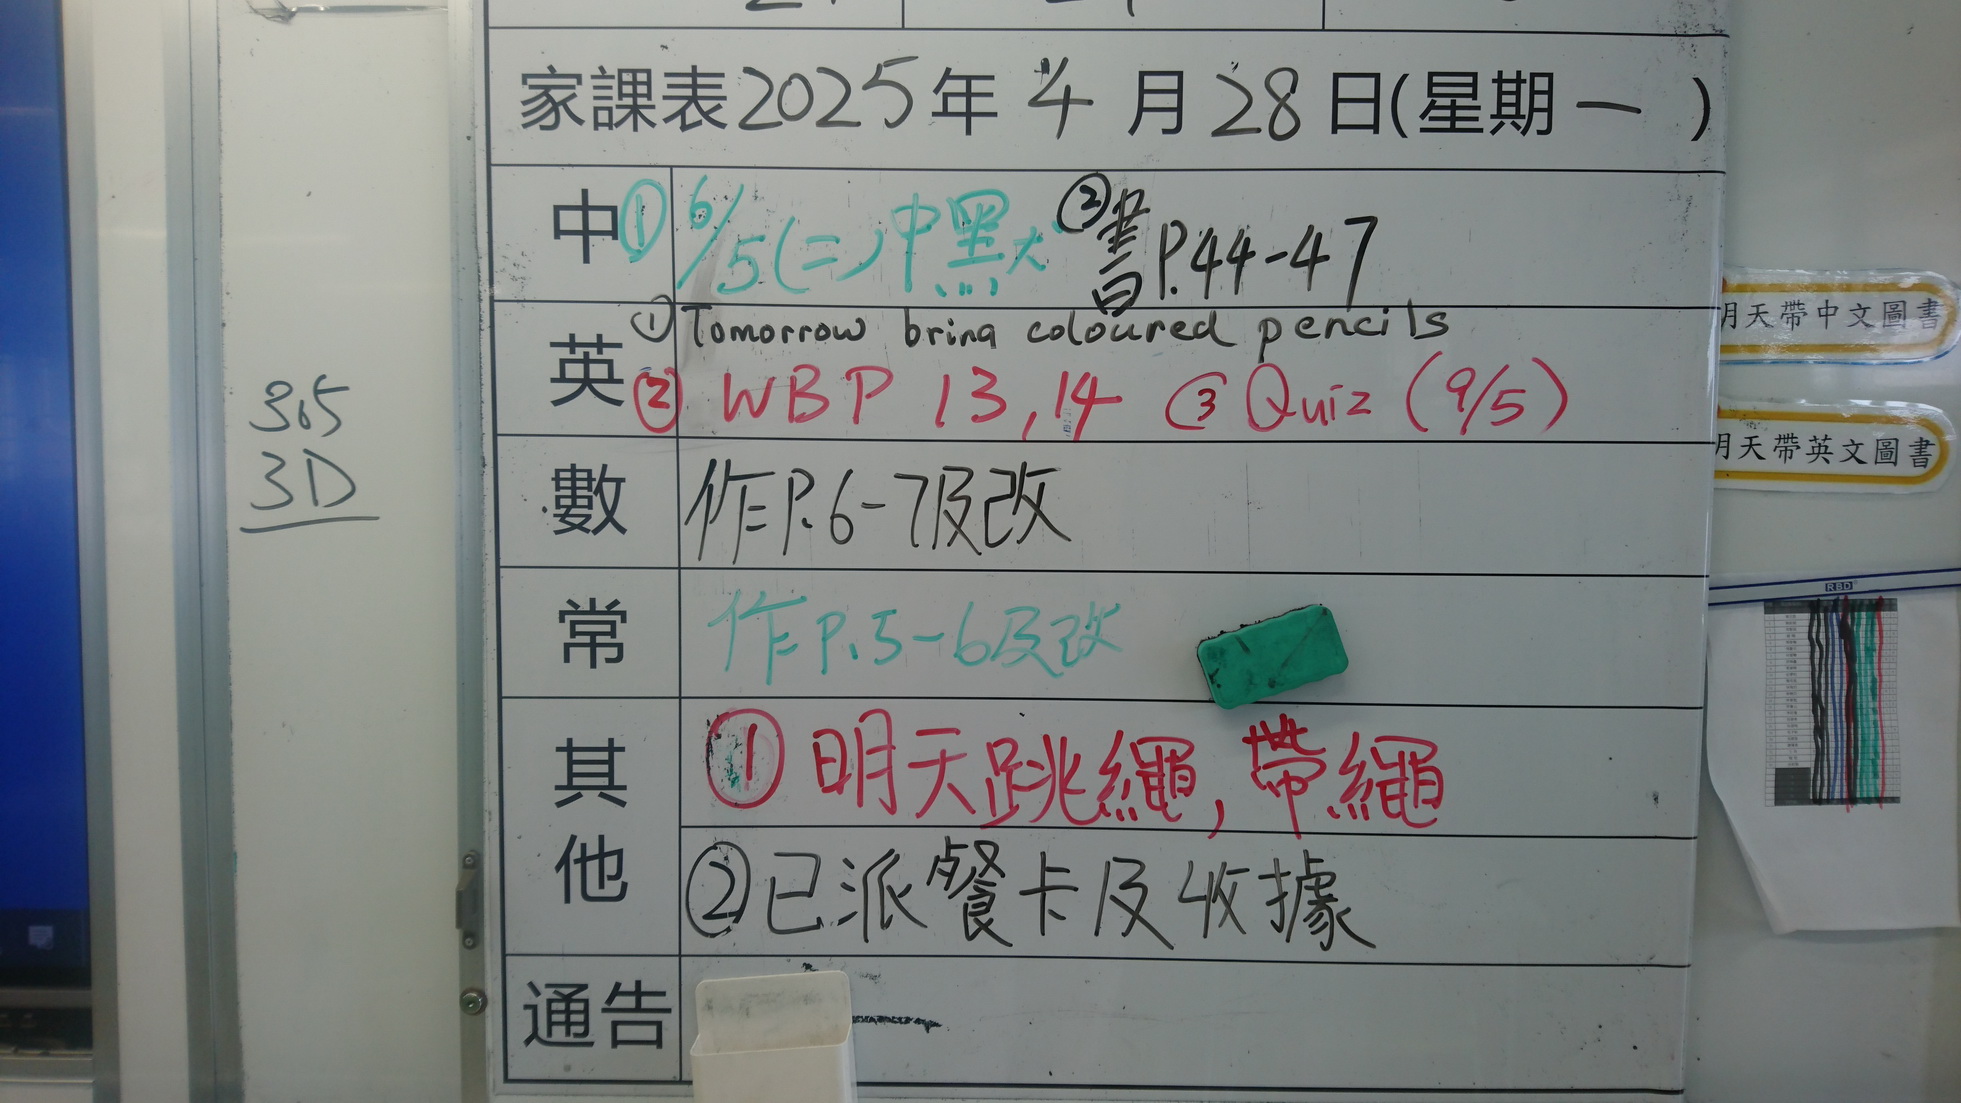 家課表2025年4月28日(星期一)
中 ① 6/5(二)中黑犬 ② 書P.44-47
英 ① Tomorrow bring coloured pencils
② WBP 13,14 ③ Quiz (9/5)
數 作P.6-7及改
常 作P.5-6及改
其他 ① 明天跳繩,帶繩
② 已派餐卡及收據
通告
305
3D
明天帶中文圖書
明天帶英文圖書
RBD